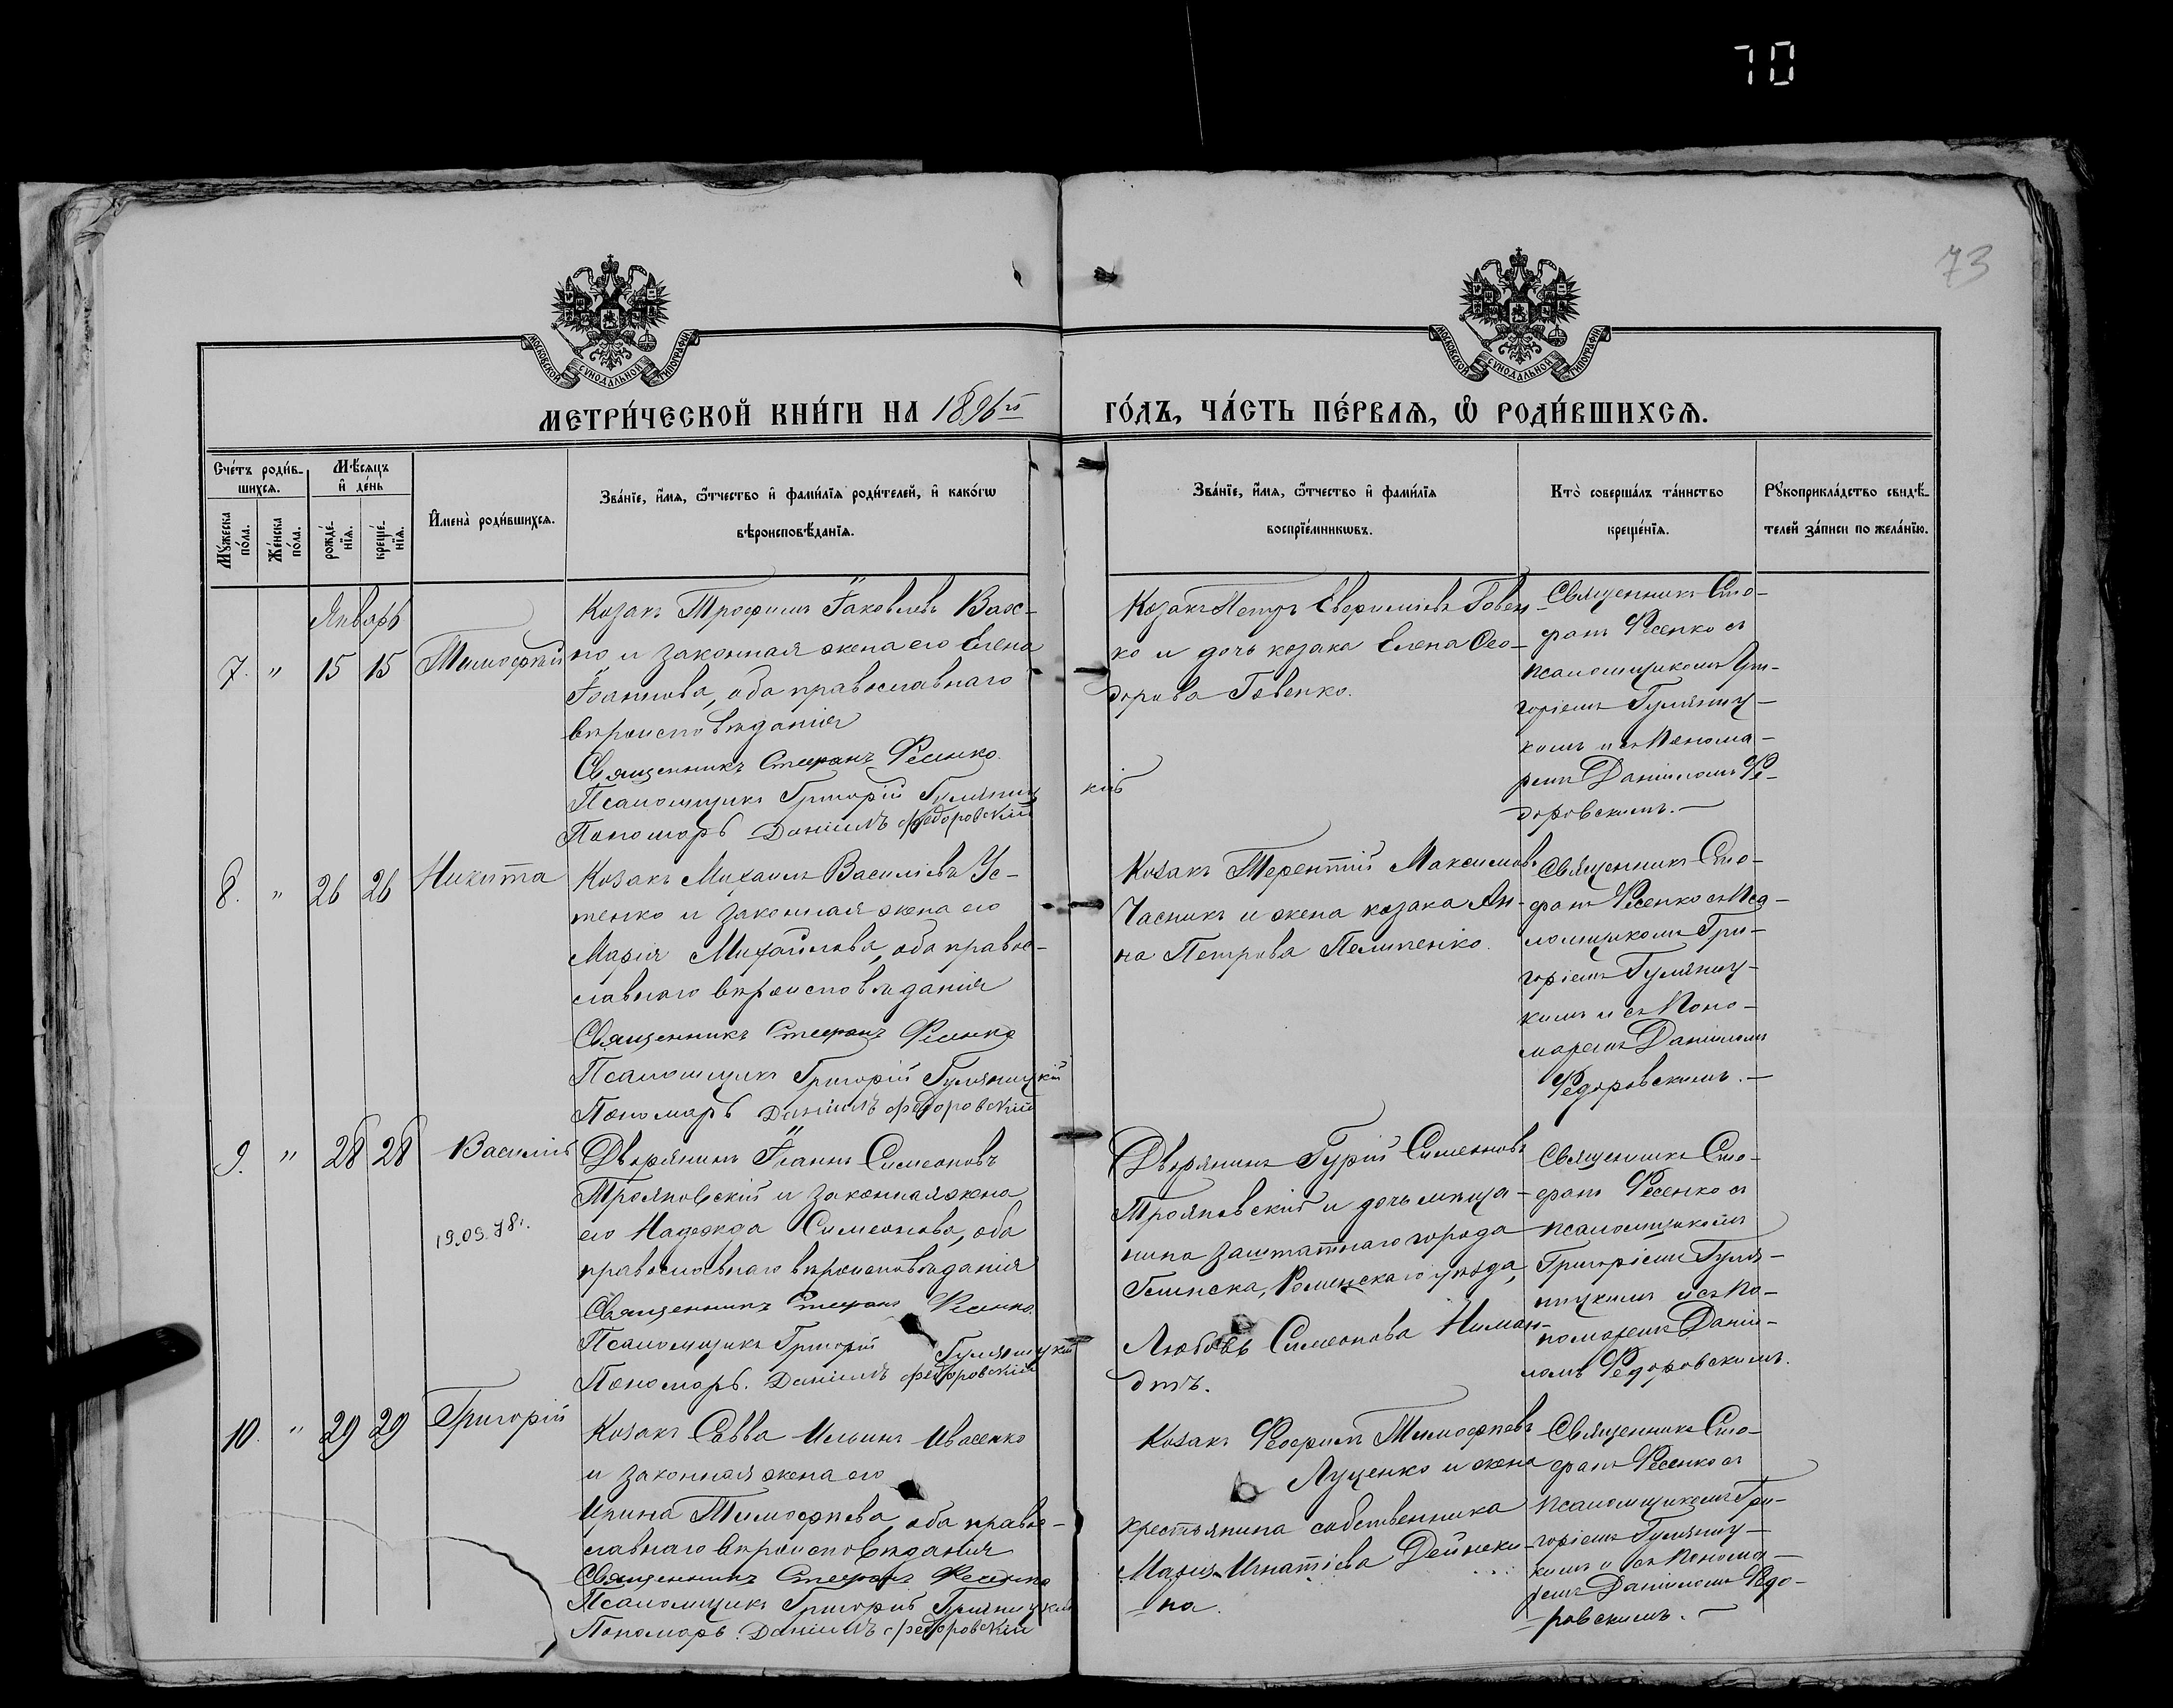 70
73
МОСКОВСКОЙ СУНОДАЛЬНОЙ ТИПОГРАФІИ
МОСКОВСКОЙ СУНОДАЛЬНОЙ ТИПОГРАФІИ
МЕТРИ́ЧЕСКОЙ КНИ́ГИ НА 1896й ГО́ДЪ, ЧА́СТЬ ПЕ́РВАѦ, Ѡ҆ РОДИ́ВШИХСѦ.
Сче́тъ роди́в-
шихсѧ.
Мѣ́сѧцъ
и҆ де́нь
Мꙋ́жеска
по́ла.
Же́нска
по́ла.
рожде́-
нїѧ.
креще́-
нїѧ.
И҆мена̀ роди́вшихсѧ.
Зва́нїе, и҆́мѧ, ѻ҆́тчество и҆ фами́лїѧ роди́телей, и҆ како́гѡ
вѣроисповѣ́данїѧ.
Зва́нїе, и҆́мѧ, ѻ҆́тчество и҆ фами́лїѧ
воспрїе́мникѡвъ.
Кто̀ соверша́лъ та́инство
креще́нїѧ.
Рꙋкоприкла́дство свидѣ́-
телей за́писи по жела́нїю.
Январь
7. " 15 15 Тимофей
Козакъ Трофимъ Іаковлевъ Вах-
но и законная жена его Елена
Іоаннова, оба православнаго
вѣроисповѣданія
Священникъ Стефанъ Фесенко.
Псаломщикъ Григорій Гуляницкій
Пономарь Даніилъ Федоровскій
Козакъ Петръ Говен-
ко и дочь козака Елена Ѳео-
дорова Говенко.
Священникъ Сте-
фанъ Фесенко съ
псаломщикомъ Гри-
горіемъ Гуляниц-
кимъ и съ Понома-
ремъ Даніиломъ Ѳе-
доровскимъ.—
8. " 26 26 Никита
Козакъ Михаилъ Василіевъ Ус-
тенко и законная жена его
Марія Михайлова, оба правос-
лавнаго вѣроисповѣданія
Священникъ Стефанъ Фесенко
Псаломщикъ Григорій Гуляницкій
Пономарь Даніилъ Федоровскій
Козакъ Терентій Максимовъ
Часникъ и жена козака Ан-
на Петрова Пелипенко.
Священникъ Сте-
фанъ Фесенко съ Пса-
ломщикомъ Гри-
горіемъ Гуляниц-
кимъ и съ Поно-
маремъ Даніиломъ
Ѳедоровскимъ.—
9. " 28 28 Василій
19.09.78г.
Дворянинъ Іоаннъ Симеоновъ
Трояновскій и законная жена
его Надежда Симеонова, оба
православнаго вѣроисповѣданія
Священникъ Стефанъ Фесенко.
Псаломщикъ Григорій Гуляницкій
Пономарь. Даніилъ Федоровскій
Дворянинъ Гурій Симеоновъ
Трояновскій и дочь мѣща-
нина заштатнаго города
Глинска, Роменскаго уѣзда,
Любовь Симеонова
Священникъ Сте-
фанъ Фесенко съ
псаломщикомъ
Григоріемъ Гуля-
ницкимъ и съ По-
номаремъ Даніи-
ломъ Ѳедоровскимъ.
10. " 29 29 Григорій
Козакъ Савва Ильинъ Ивасенко
и законная жена его
Ирина Тимофеева, оба правос-
лавнаго вѣроисповѣданія
Священникъ Стефанъ Фесенко
Псаломщикъ Григорій Гуляницкій
Пономарь. Даніилъ Федоровскій
Козакъ Тимофеевъ
Луценко и жена
крестьянина собственника
Марія Игнатіева Дейнеки-
на.
Священникъ Сте-
фанъ Фесенко съ
псаломщикомъ Гри-
горіемъ Гуляниц-
кимъ и съ Понома-
ремъ Даніиломъ Ѳедо-
ровскимъ.—